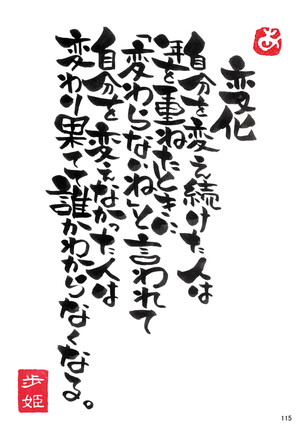 あ
変化
自分を変え続けた人は
年を重ねたときに
「変わらないね」と言われて
自分を変えなかった人は
変わり果てて誰かわからなくなる。
歩姫
115